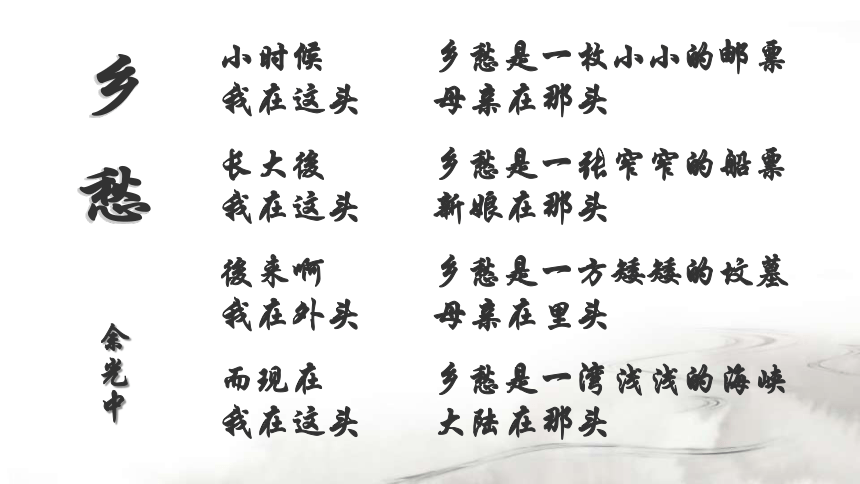 乡愁
余光中
小时候 乡愁是一枚小小的邮票
我在这头 母亲在那头
长大後 乡愁是一张窄窄的船票
我在这头 新娘在那头
後来啊 乡愁是一方矮矮的坟墓
我在外头 母亲在里头
而现在 乡愁是一湾浅浅的海峡
我在这头 大陆在那头